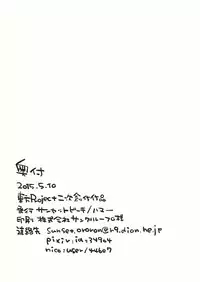 奥付
2015.5.10
東方Project二次創作作品
発行 サンセットピーチ/ハスー
印刷 株式会社サングループ様
連絡先 sunset.ororon@r9.dion.ne.jp
pixiv,id,34964
nico:user/44607